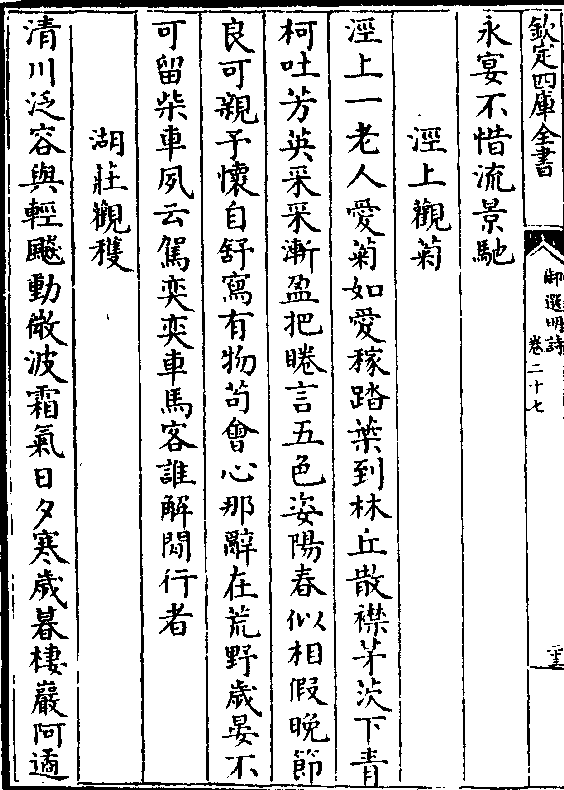 欽定四庫全書
御選明詩
卷二十七
永宴不惜流景馳
涇上觀菊
涇上一老人愛菊如愛稼踏葉到林丘散襟茅茨下青
柯吐芳英采采漸盈把睠言五色姿陽春似相假晚節
良可親予懷自舒寫有物苟會心那辭在荒野歲晏不
可留柴車夙云駕奕奕車馬客誰解閒行者
湖莊觀穫
清川泛容與輕颸動微波霜氣日夕寒歲暮棲巖阿遹